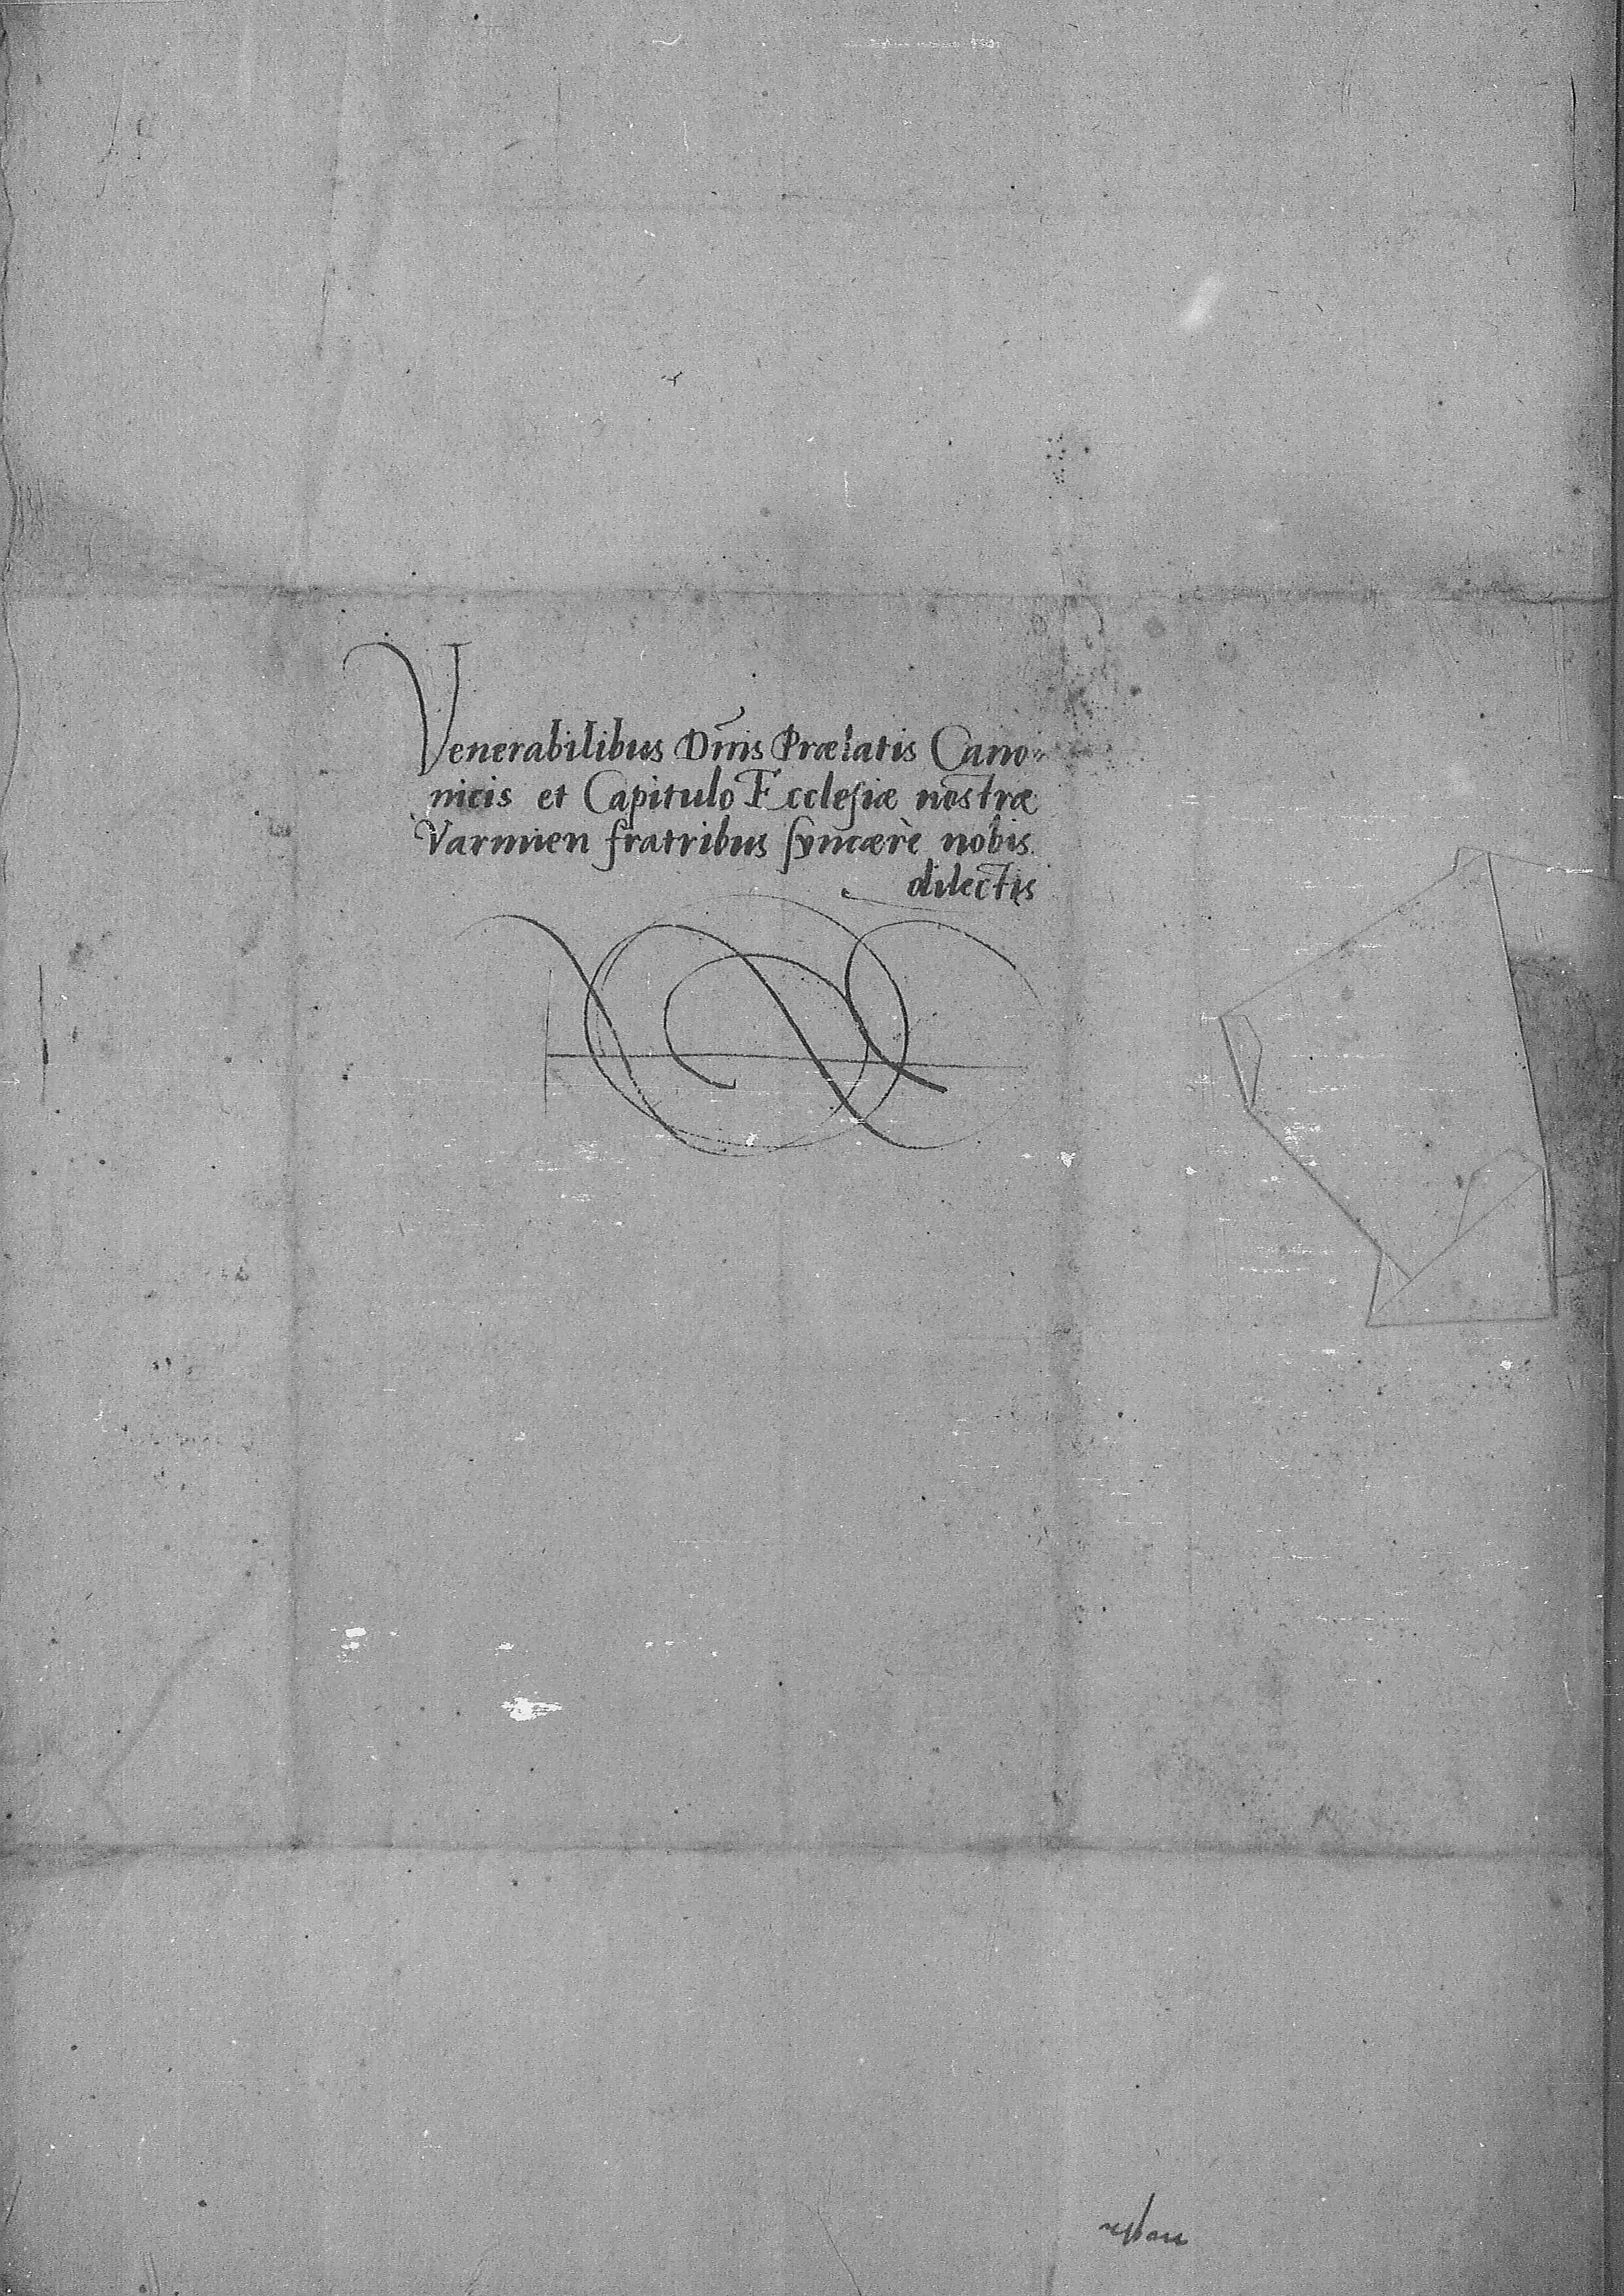 Venerabilibus Dnis Prælatis Cano-
nicis et Capitulo Ecclesiæ nostræ
Varmien fratribus syncærè nobis
dilectis